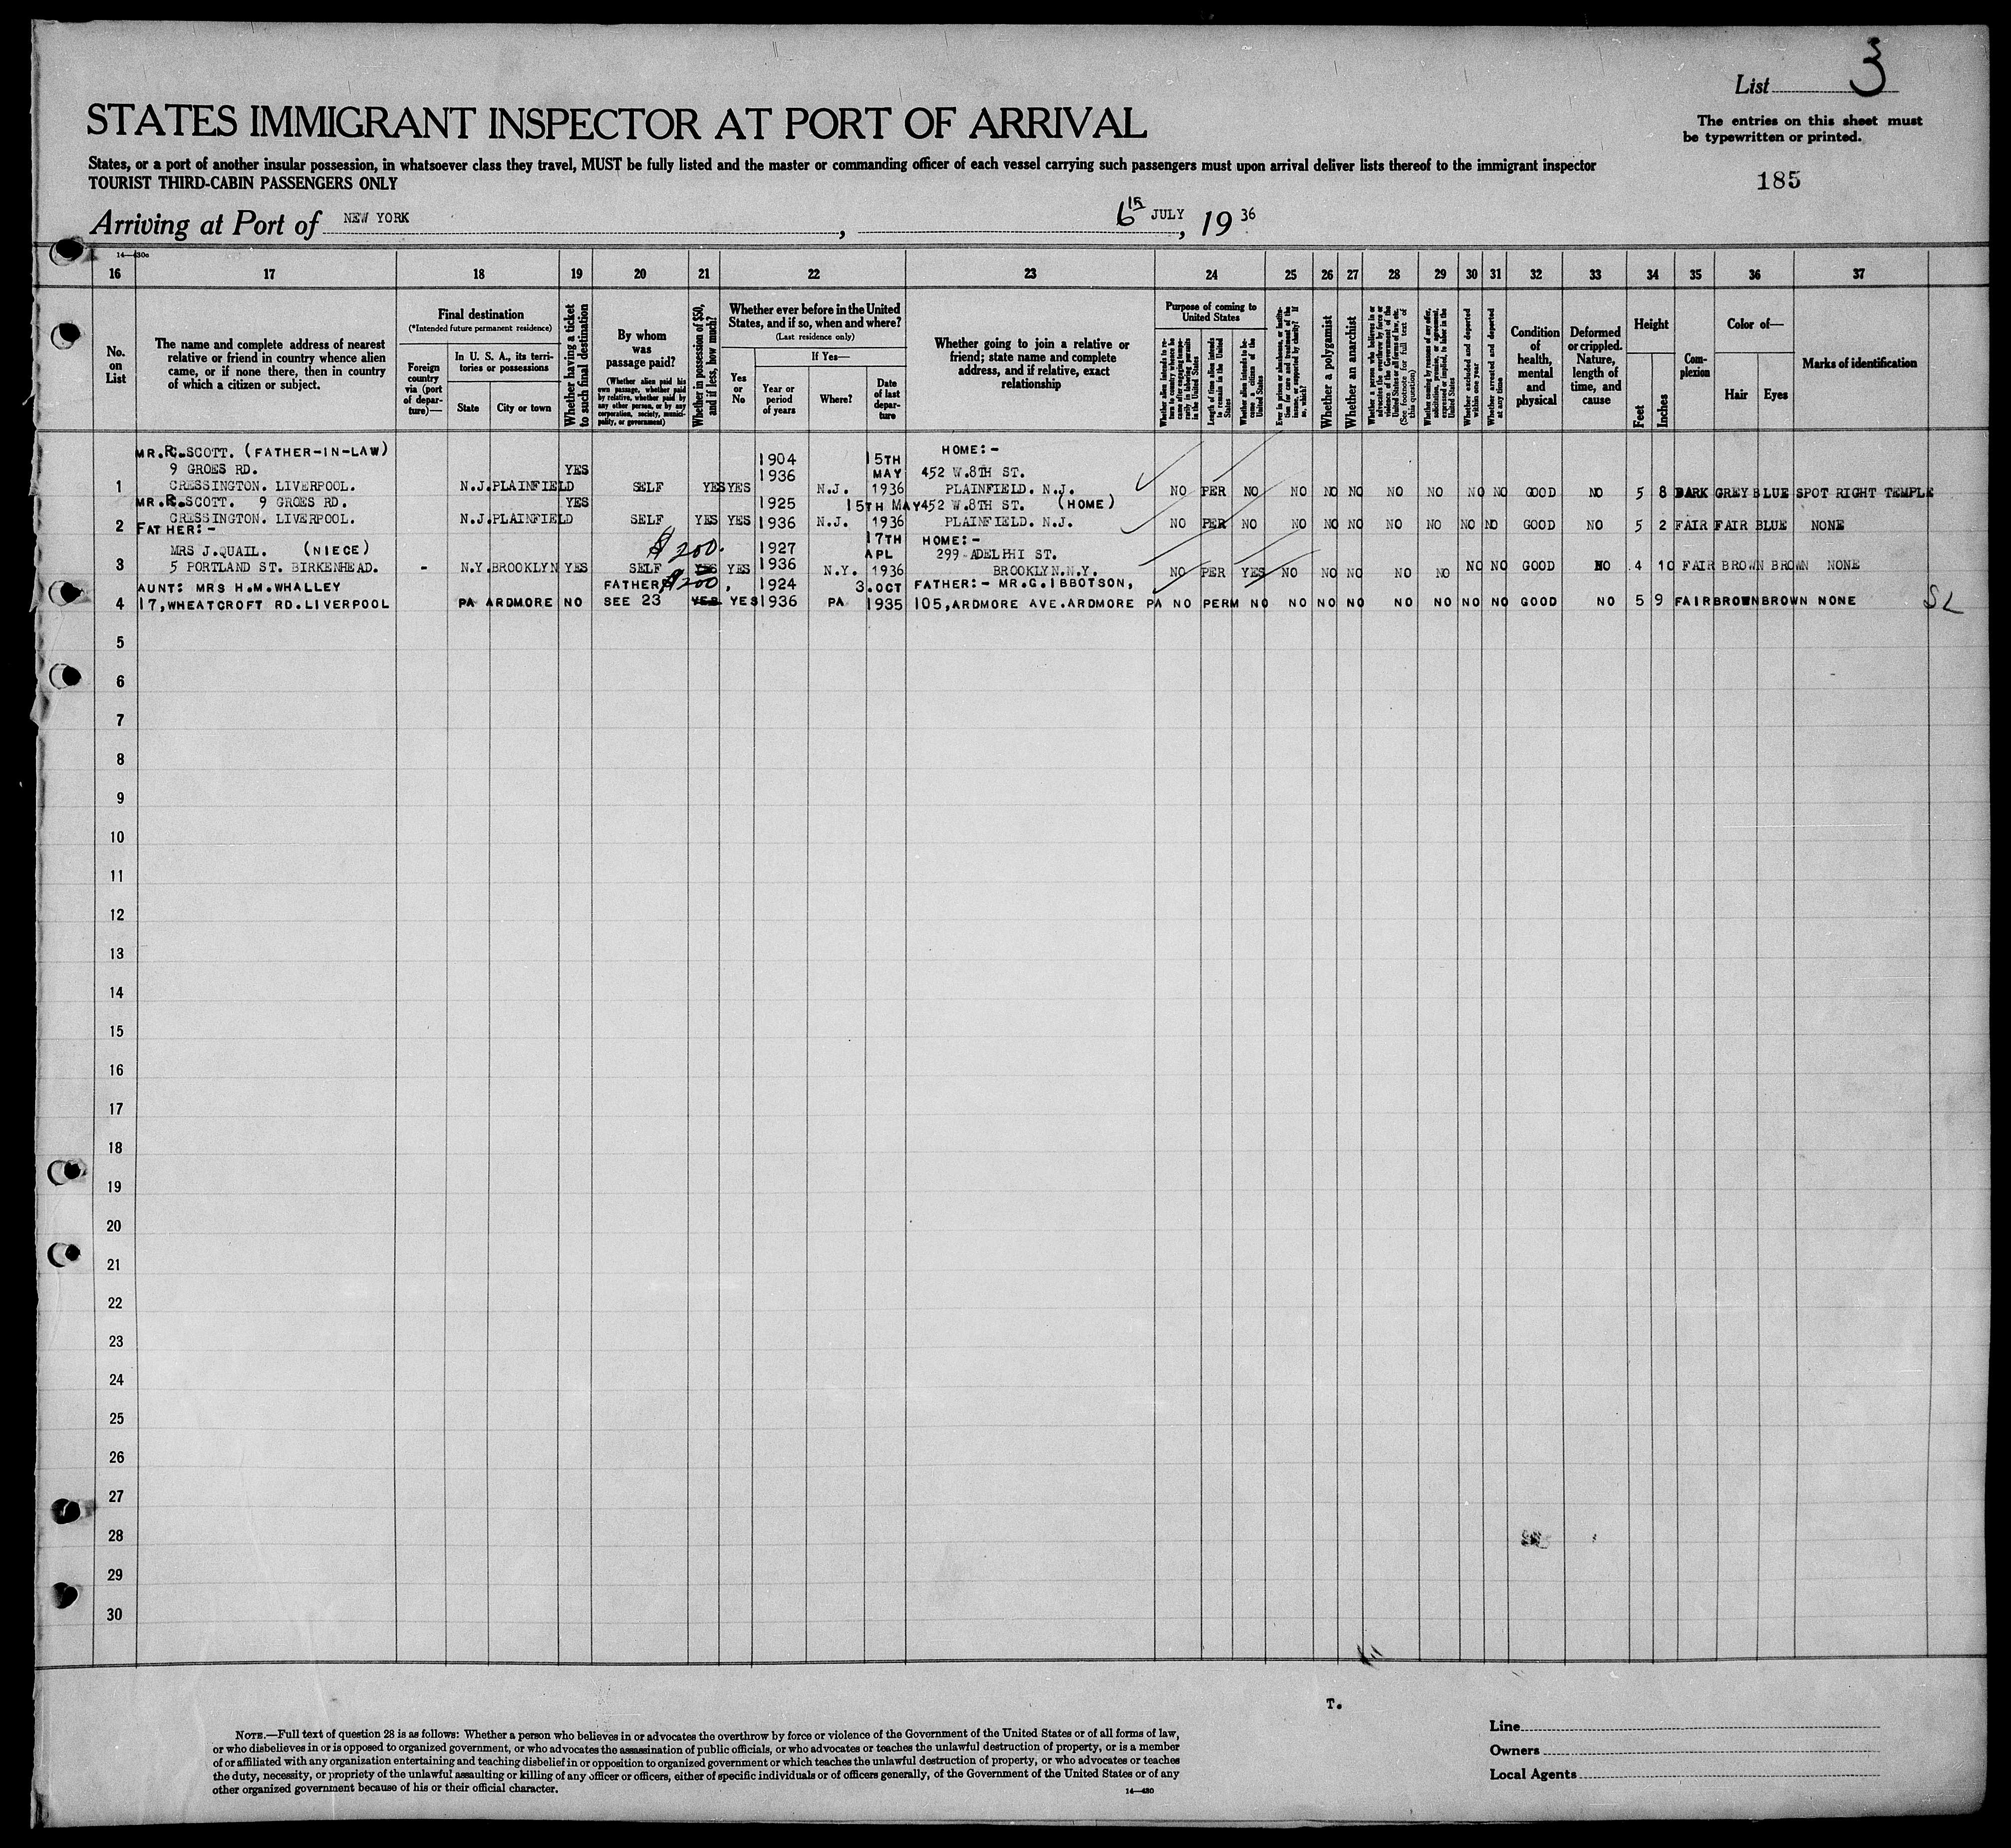 List 3
STATES IMMIGRANT INSPECTOR AT PORT OF ARRIVAL
The entries on this sheet must
be typewritten or printed.
States, or a port of another insular possession, in whatsoever class they travel, MUST be fully listed and the master or commanding officer of each vessel carrying such passengers must upon arrival deliver lists thereof to the immigrant inspector
TOURIST THIRD-CABIN PASSENGERS ONLY
185
Arriving at Port of NEW YORK, 6th JULY, 1936
14—430c
16 17 18 19 20 21 22 23 24 25 26 27 28 29 30 31 32 33 34 35 36 37
No. on List
The name and complete address of nearest relative or friend in country whence alien came, or if none there, then in country of which a citizen or subject.
Final destination
(*Intended future permanent residence)
Foreign country via (port of departure)—
In U. S. A., its territories or possessions
State
City or town
Whether having a ticket to such final destination
By whom was passage paid?
(Whether alien paid his own passage, whether paid by relative, whether paid by any other person, or by any corporation, society, municipality, or government)
Whether in possession of $50, and if less, how much?
Whether ever before in the United States, and if so, when and where?
(Last residence only)
Yes or No
If Yes—
Year or period of years
Where?
Date of last departure
Whether going to join a relative or friend; state name and complete address, and if relative, exact relationship
Purpose of coming to United States
Whether alien intends to return to country whence he came after engaging temporarily in laboring pursuits in the United States
Length of time alien intends to remain in the United States
Whether alien intends to become a citizen of the United States
Ever in prison or almshouse, or institution for care and treatment of the insane, or supported by charity? If so, which?
Whether a polygamist
Whether an anarchist
Whether a person who believes in or advocates the overthrow by force or violence of the Government of the United States or all forms of law, etc. (See footnote for full text of this question)
Whether coming by reasons of any offer, solicitation, promise, or agreement, expressed or implied, to labor in the United States
Whether excluded and deported within one year
Whether arrested and deported at any time
Condition of health, mental and physical
Deformed or crippled. Nature, length of time, and cause
Height
Feet
Inches
Complexion
Color of—
Hair
Eyes
Marks of identification
MR.R.SCOTT. (FATHER-IN-LAW) 1904 15TH HOME:-
9 GROES RD. YES 1936 MAY 452 W.8TH ST.
1 CRESSINGTON. LIVERPOOL. N.J. PLAINFIELD SELF YES YES N.J. 1936 PLAINFIELD. N.J. NO PER NO NO NO NO NO NO NO NO GOOD NO 5 8 DARK GREY BLUE SPOT RIGHT TEMPLE
MR.R.SCOTT. 9 GROES RD. YES 1925 15TH MAY 452 W.8TH ST. (HOME)
2 CRESSINGTON. LIVERPOOL. N.J. PLAINFIELD SELF YES YES 1936 N.J. 1936 PLAINFIELD. N.J. NO PER NO NO NO NO NO NO NO NO GOOD NO 5 2 FAIR FAIR BLUE NONE
FATHER:- 17TH HOME:-
MRS J.QUAIL. (NIECE) $200. 1927 APL 299-ADELPHI ST.
3 5 PORTLAND ST. BIRKENHEAD. - N.Y. BROOKLYN YES SELF YES YES 1936 N.Y. 1936 BROOKLYN.N.Y. NO PER YES NO NO NO NO NO NO NO GOOD NO 4 10 FAIR BROWN BROWN NONE
AUNT: MRS H.M.WHALLEY FATHER, $200, 1924 3.OCT FATHER:- MR.G.IBBOTSON,
4 17,WHEATCROFT RD.LIVERPOOL PA ARDMORE NO SEE 23 YES YES 1936 PA 1935 105,ARDMORE AVE.ARDMORE PA NO PERM NO NO NO NO NO NO NO NO GOOD NO 5 9 FAIR BROWN BROWN NONE SL
5
6
7
8
9
10
11
12
13
14
15
16
17
18
19
20
21
22
23
24
25
26
27
28
29
30
T.
NOTE.—Full text of question 28 is as follows: Whether a person who believes in or advocates the overthrow by force or violence of the Government of the United States or of all forms of law,
or who disbelieves in or is opposed to organized government, or who advocates the assassination of public officials, or who advocates or teaches the unlawful destruction of property, or is a member
of or affiliated with any organization entertaining and teaching disbelief in or opposition to organized government or which teaches the unlawful destruction of property, or who advocates or teaches
the duty, necessity, or propriety of the unlawful assaulting or killing of any officer or officers, either of specific individuals or of officers generally, of the Government of the United States or of any
other organized government because of his or their official character.
14—430
Line
Owners
Local Agents